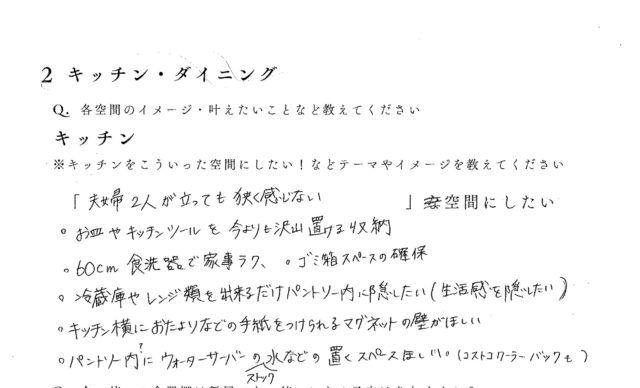 2 キッチン・ダイニング
Q. 各空間のイメージ・叶えたいことなど教えてください
キッチン
※キッチンをこういった空間にしたい！などテーマやイメージを教えてください
「夫婦2人が立っても狭く感じない 」な空間にしたい
○ お皿やキッチンツールを今よりも沢山置ける収納
○ 60cm 食洗器で家事ラク、 ○ ゴミ箱スペースの確保
○ 冷蔵庫やレンジ類を出来るだけパントリー内に隠したい(生活感を隠したい)
○ キッチン横におたよりなどの手紙をつけられるマグネットの壁がほしい
○ パントリー内?にウォーターサーバーの水などの置くスペースほしい。(コストコクーラーバックも)
ストック